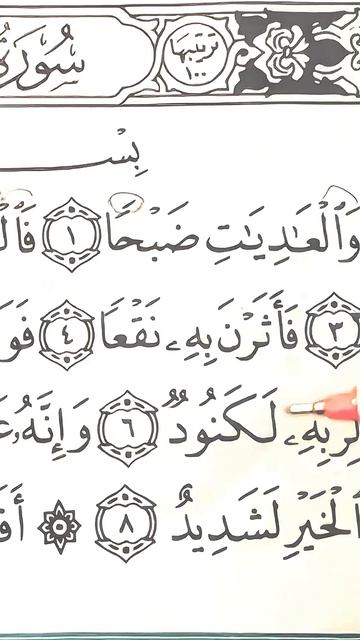 سُورَةُ
تَرتيبُها ١٠٠
بِسْـ
وَٱلْعَٰدِيَٰتِ ضَبْحًا ١
٣ فَأَثَرْنَ بِهِۦ نَقْعًا ٤
لِرَبِّهِۦ لَكَنُودٌ ٦ وَإِنَّهُۥ
ٱلْخَيْرِ لَشَدِيدٌ ٨